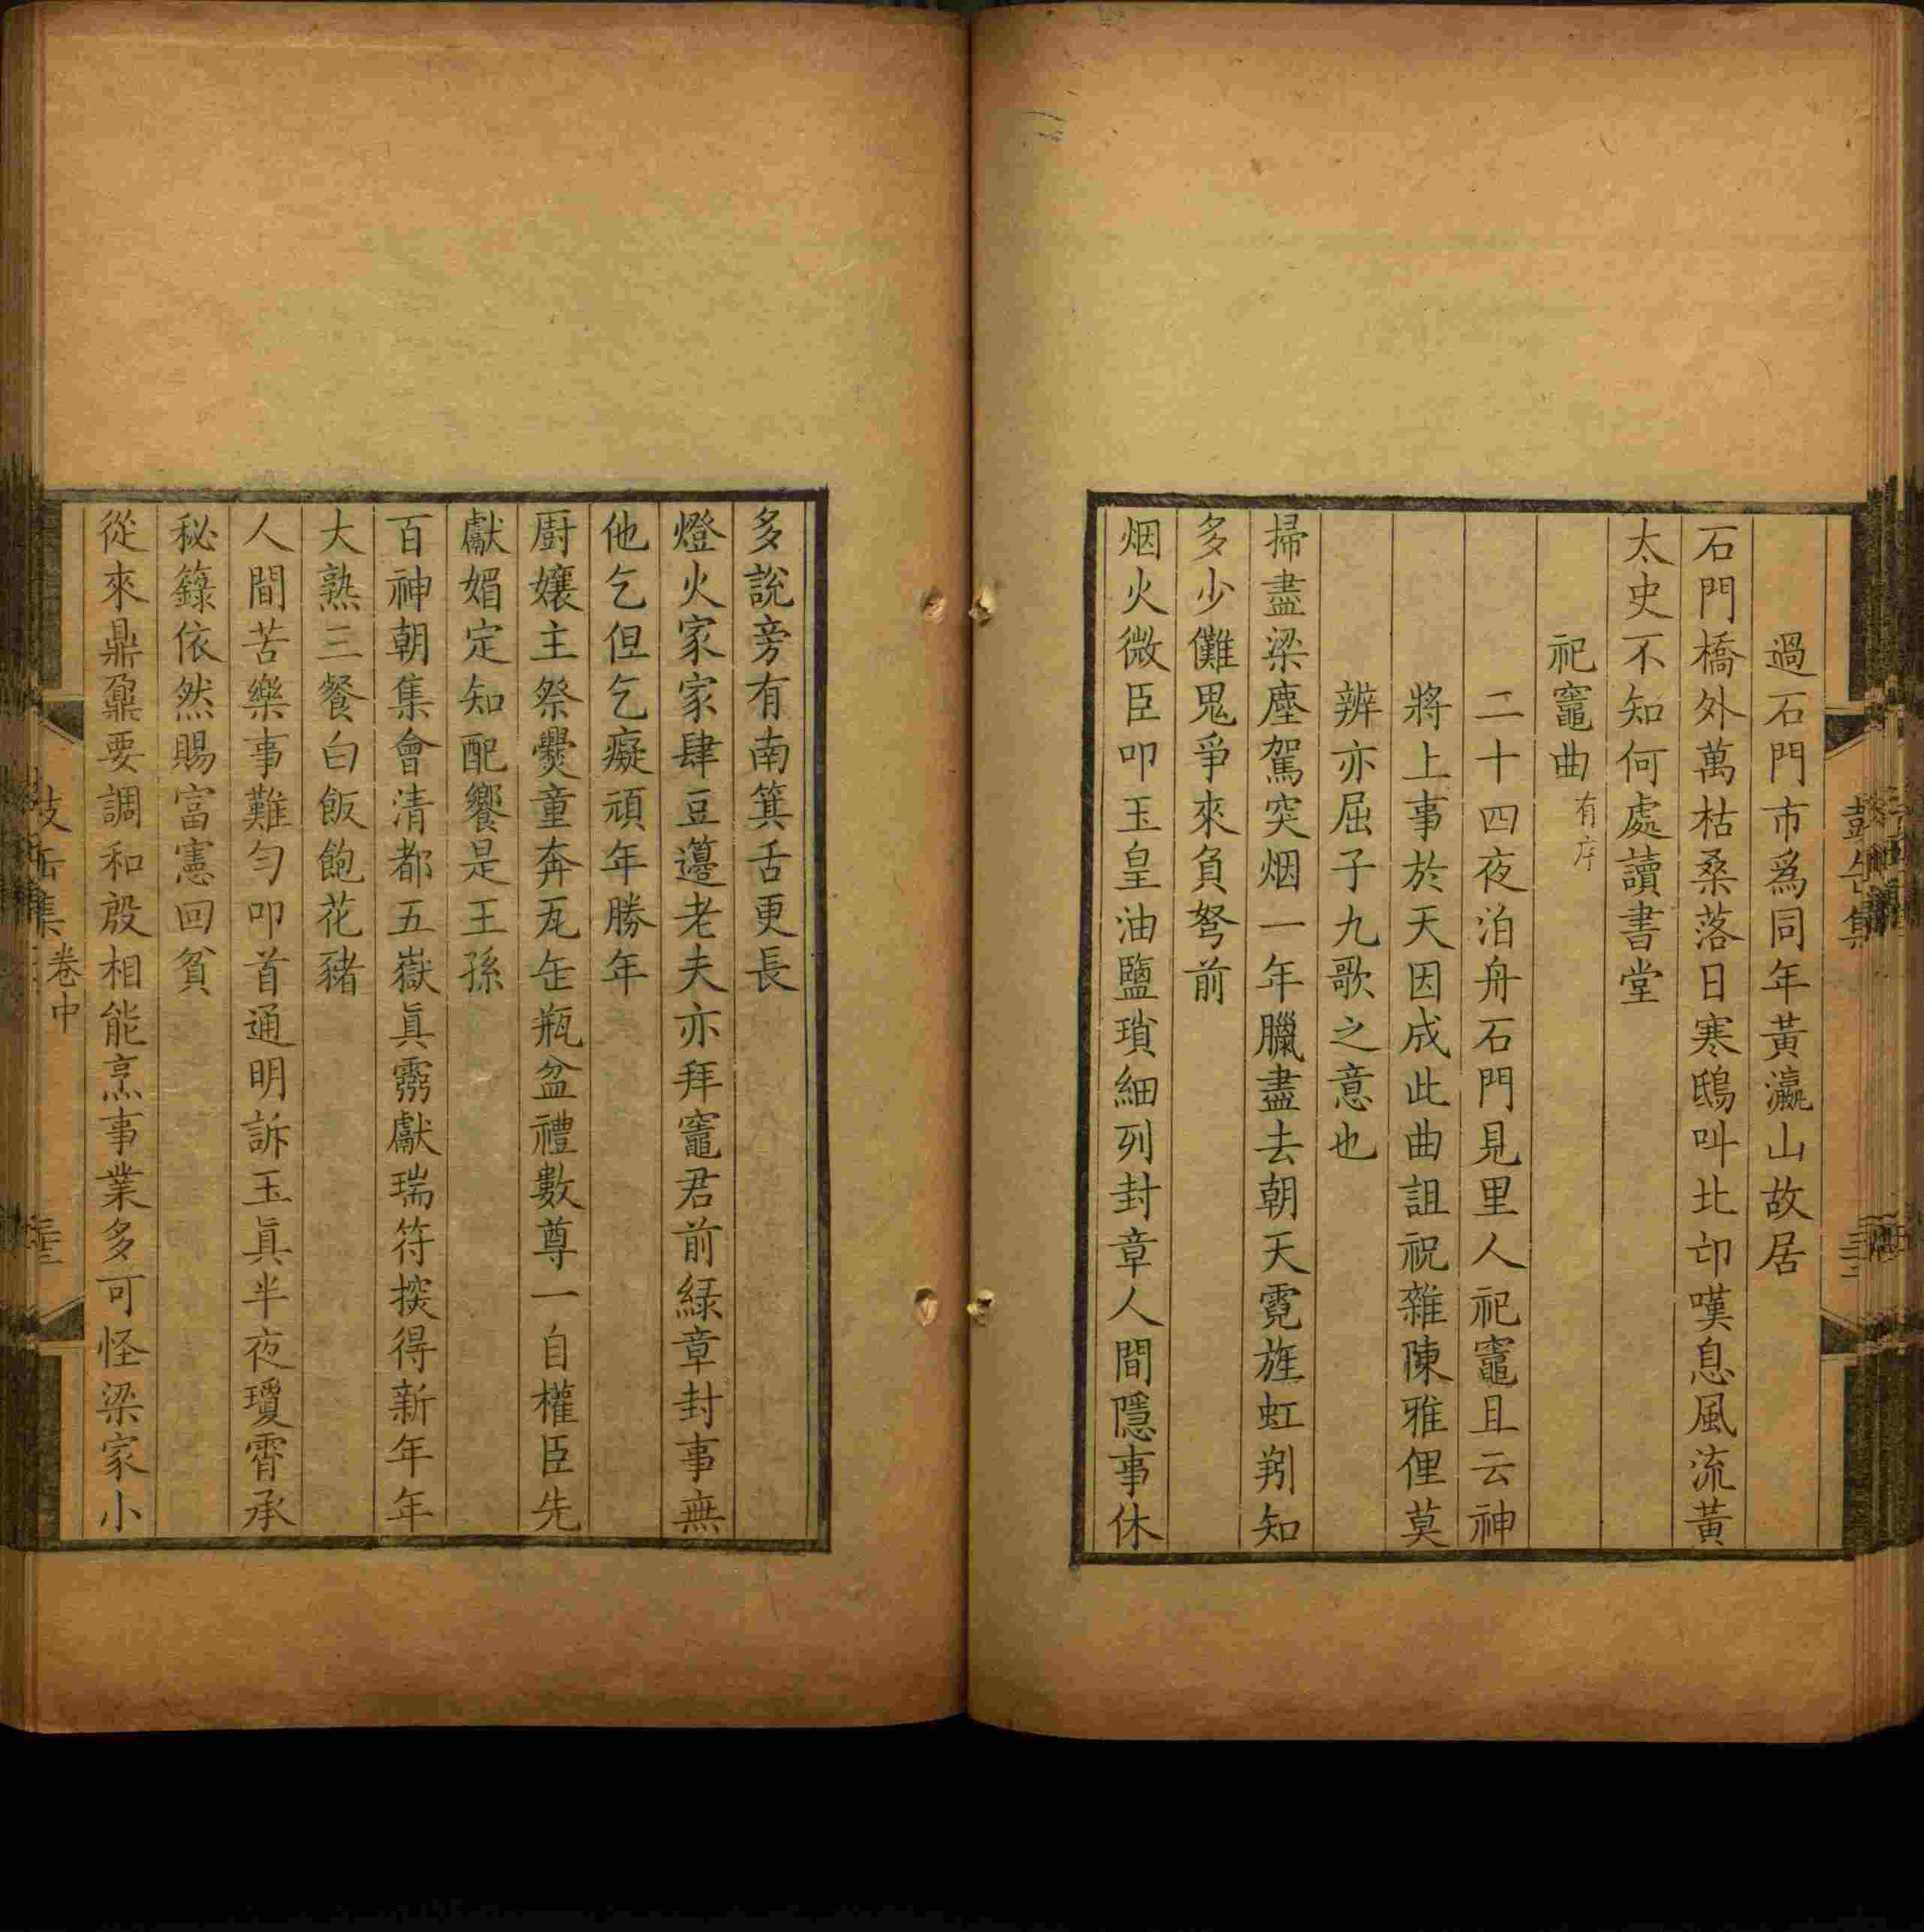 過石門市爲同年黃瀛山故居
石門橋外萬枯桑落日寒鴟叫北邙嘆息風流黃
太史不知何處讀書堂
祀竈曲有序
二十四夜泊舟石門見里人祀竈且云神
將上事於天因成此曲詛祝雜陳雅俚莫
辨亦屈子九歌之意也
掃盡梁塵駕突烟一年臘盡去朝天霓旌虹
知
多少儺鬼爭來負弩前
烟火微臣叩玉皇油鹽瑣細列封章人間隱事休
多說旁有南箕舌更長
燈火家家肆豆籩老夫亦拜竈君前緑章封事無
他乞但乞癡頑年勝年
厨孃主祭爨童奔瓦缶瓶盆禮數尊一自權臣先
獻媚定知配饗是王孫
百神朝集會清都五嶽眞靈獻瑞符揬得新年年
大熟三餐白飯飽花豬
人間苦樂事難勻叩首通明訴玉眞半夜瓊霄承
秘籙依然賜富憲回貧
從來鼎鼐要調和殷相能烹事業多可怪梁家小
集 卷中